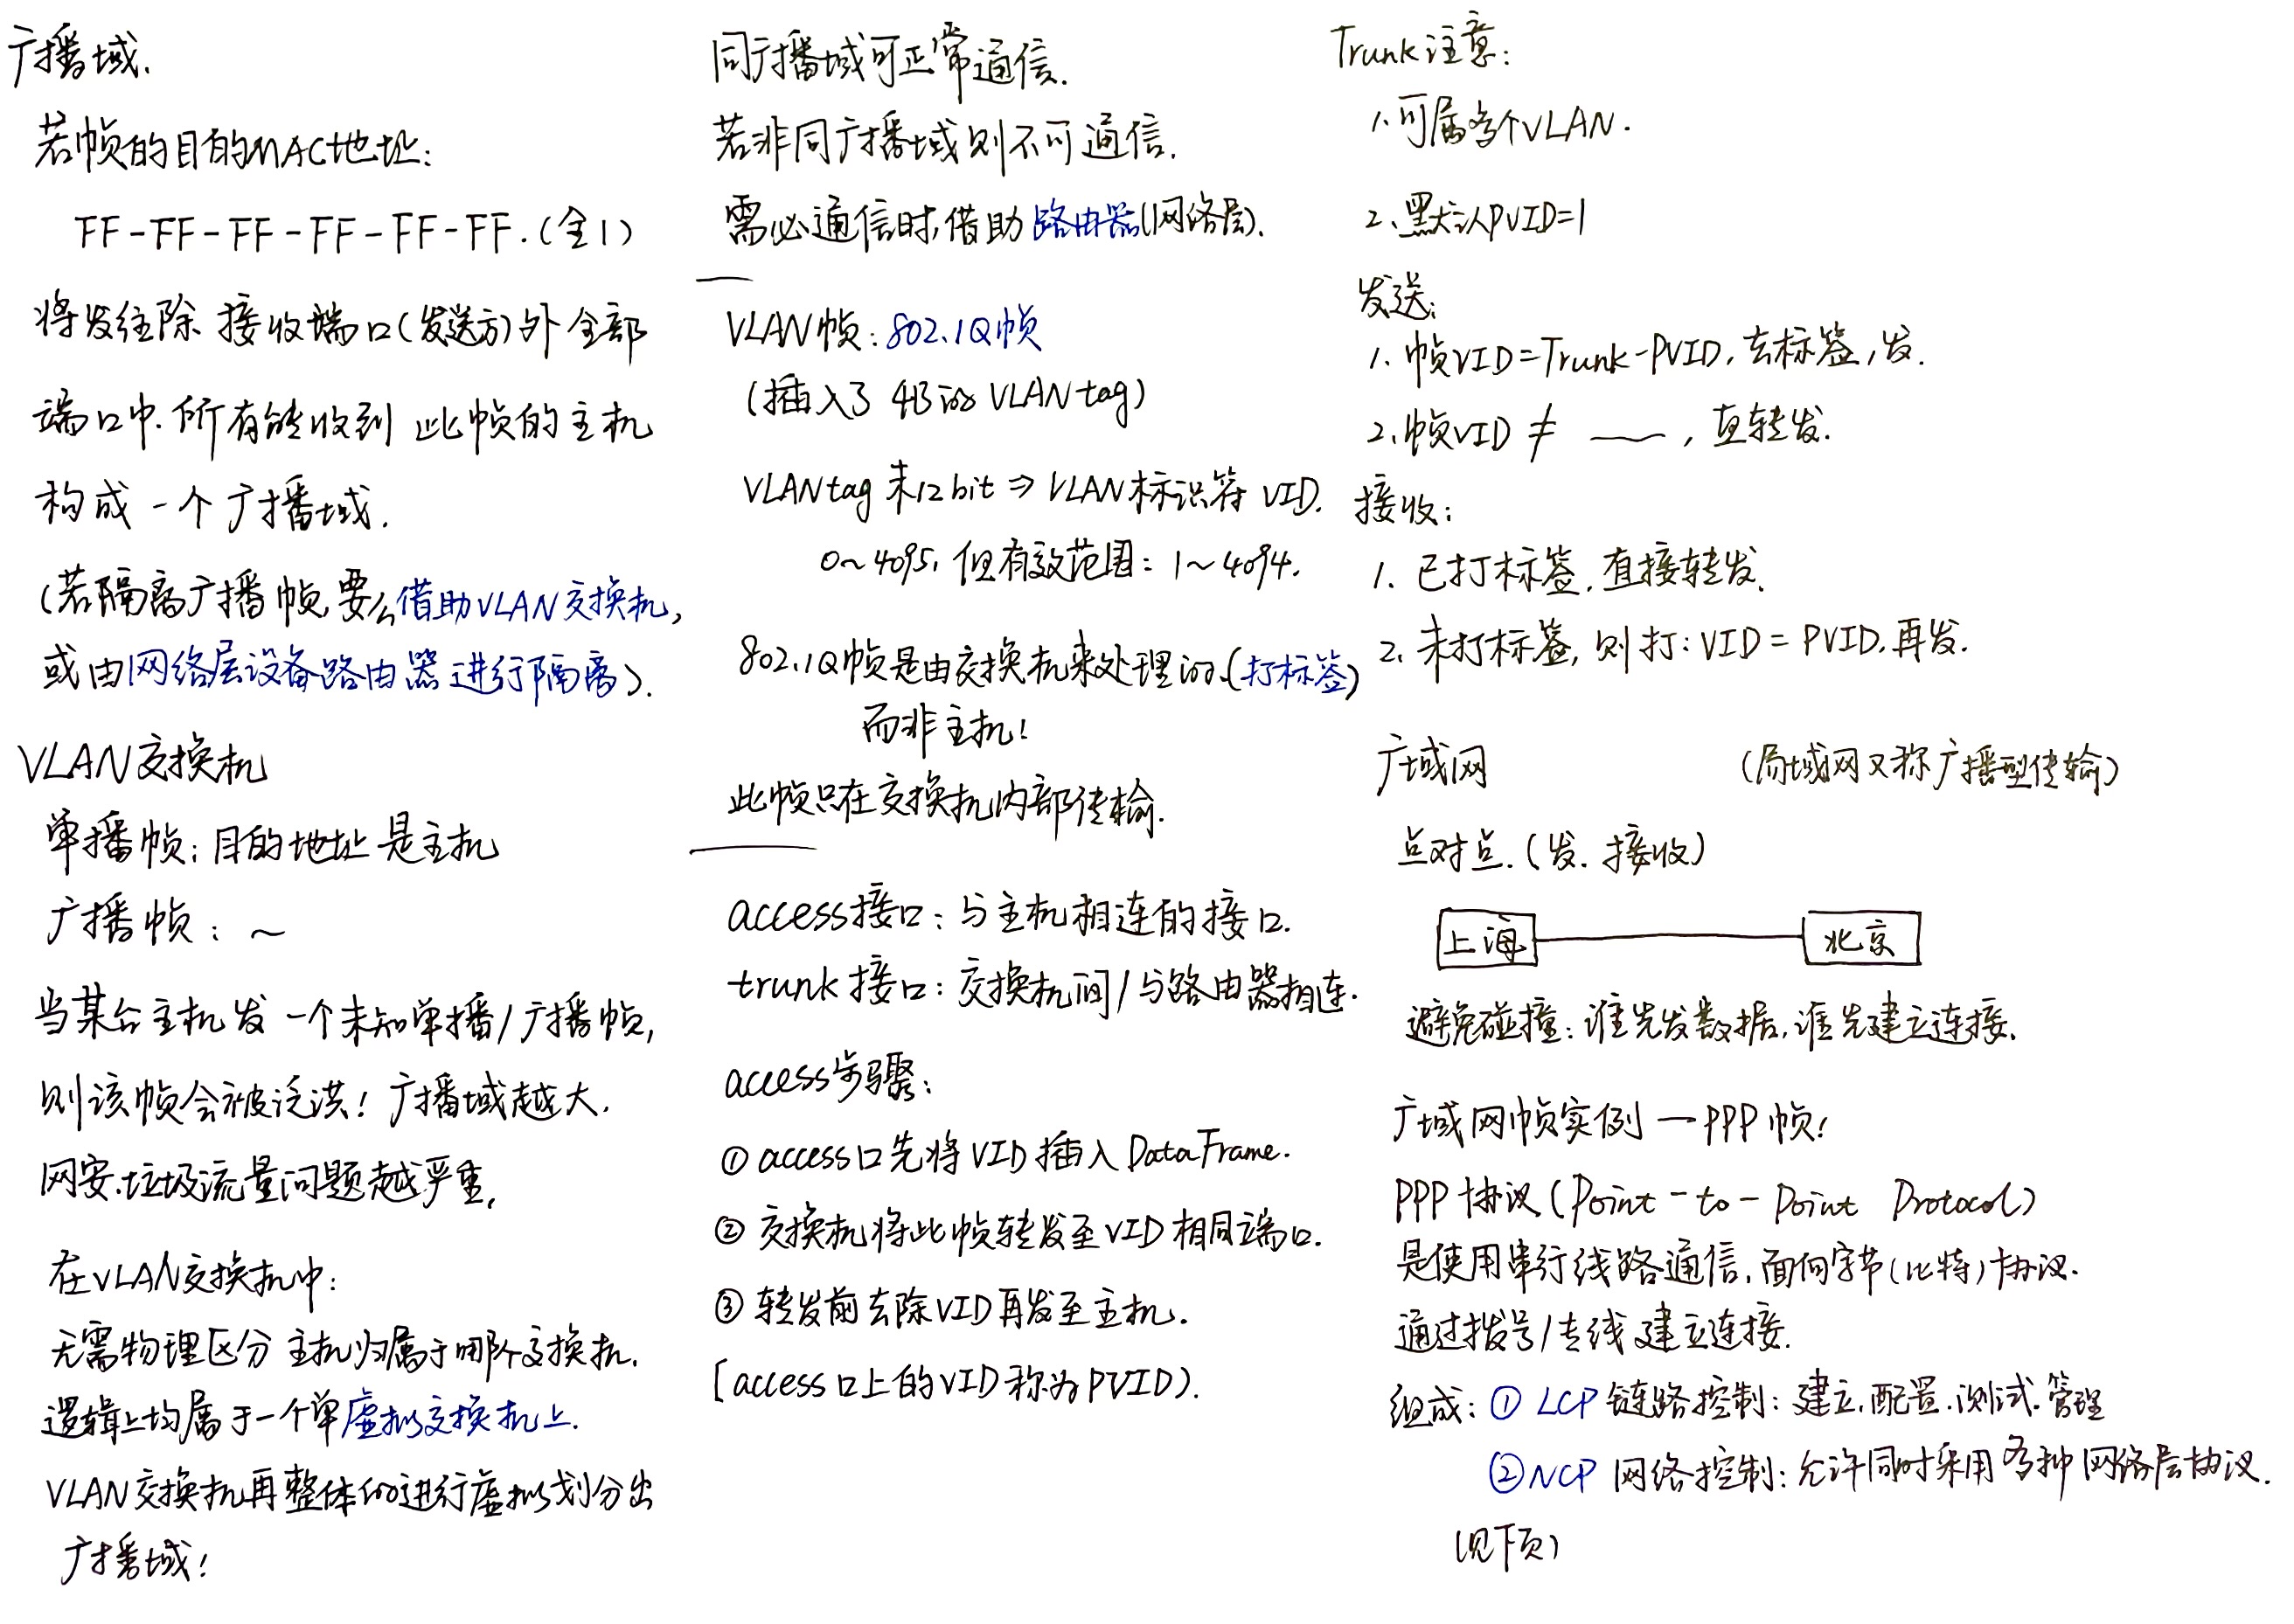 广播域.
若帧的目的MAC地址:
FF-FF-FF-FF-FF-FF.(全1)
将发往除 接收端口(发送方)外全部
端口中.所有能收到 此帧的主机
构成 一个广播域.
(若隔离广播帧,要么借助VLAN交换机,
或由网络层设备路由器进行隔离).
VLAN交换机
单播帧: 目的地址是主机
广播帧: ~
当某台主机发 一个未知单播/广播帧,
则该帧会被泛洪! 广播域越大,
网安.垃圾流量问题越严重,
在VLAN交换机中:
无需物理区分 主机归属于哪个交换机.
逻辑上均属于一个单虚拟交换机上.
VLAN交换机再整体的进行虚拟划分出
广播域!
同广播域可正常通信.
若非同广播域则不可通信.
需必通信时,借助路由器(网络层).
VLAN帧: 802.1Q帧
(插入了 4B的 VLAN tag)
VLAN tag 末12bit ⇒ VLAN标识符 VID.
0~4095, 但有效范围: 1~4094.
802.1Q帧是由交换机来处理的.(打标签)
而非主机!
此帧只在交换机内部传输.
access接口: 与主机相连的接口.
trunk接口: 交换机间/与路由器相连.
access步骤:
① access口先将VID插入DataFrame.
② 交换机将此帧转发至VID相同端口.
③ 转发前去除VID再发至主机.
[access口上的VID称为PVID).
Trunk注意:
1.可属多个VLAN.
2.默认PVID=1
发送:
1. 帧VID=Trunk-PVID, 去标签,发.
2.帧VID ≠ ——, 直转发.
接收:
1. 已打标签,直接转发.
2. 未打标签,则打: VID = PVID.再发.
广域网 (局域网又称广播型传输)
点对点.(发.接收)
上海 北京
避免碰撞: 谁先发数据,谁先建立连接.
广域网帧实例 — PPP帧!
PPP协议(Point-to-Point Protocol)
是使用串行线路通信,面向字节(比特)协议.
通过拨号/专线建立连接.
组成: ① LCP 链路控制: 建立.配置.测试.管理
②NCP 网络控制: 允许同时采用多种网络层协议.
(见下页)